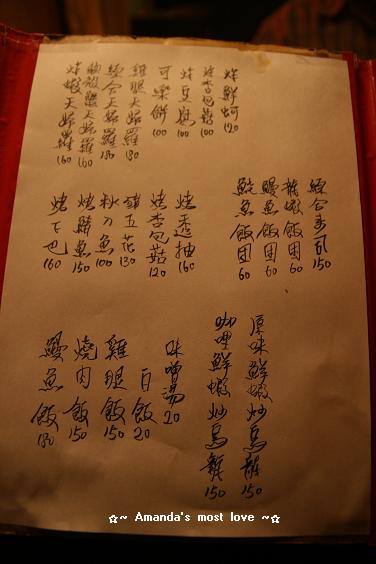 炸鮮蚵 120
炸杏包菇 100
炸豆腐 100
可樂餅 100
雞腿天婦羅 130
綜合天婦羅 180
軟殼蟹天婦羅 160
炸蝦天婦羅 160
綜合壽司 150
龍蝦飯団 60
鰻魚飯団 60
鮭魚飯団 60
烤透抽 160
烤杏包菇 120
豬五花 130
秋刀魚 100
烤鯖魚 150
烤下巴 160
原味鮮蝦炒烏龍 150
咖哩鮮蝦炒烏龍 150
味噌湯 20
白飯 20
雞腿飯 150
燒肉飯 150
鰻魚飯 180
☆~ Amanda's most love ~☆